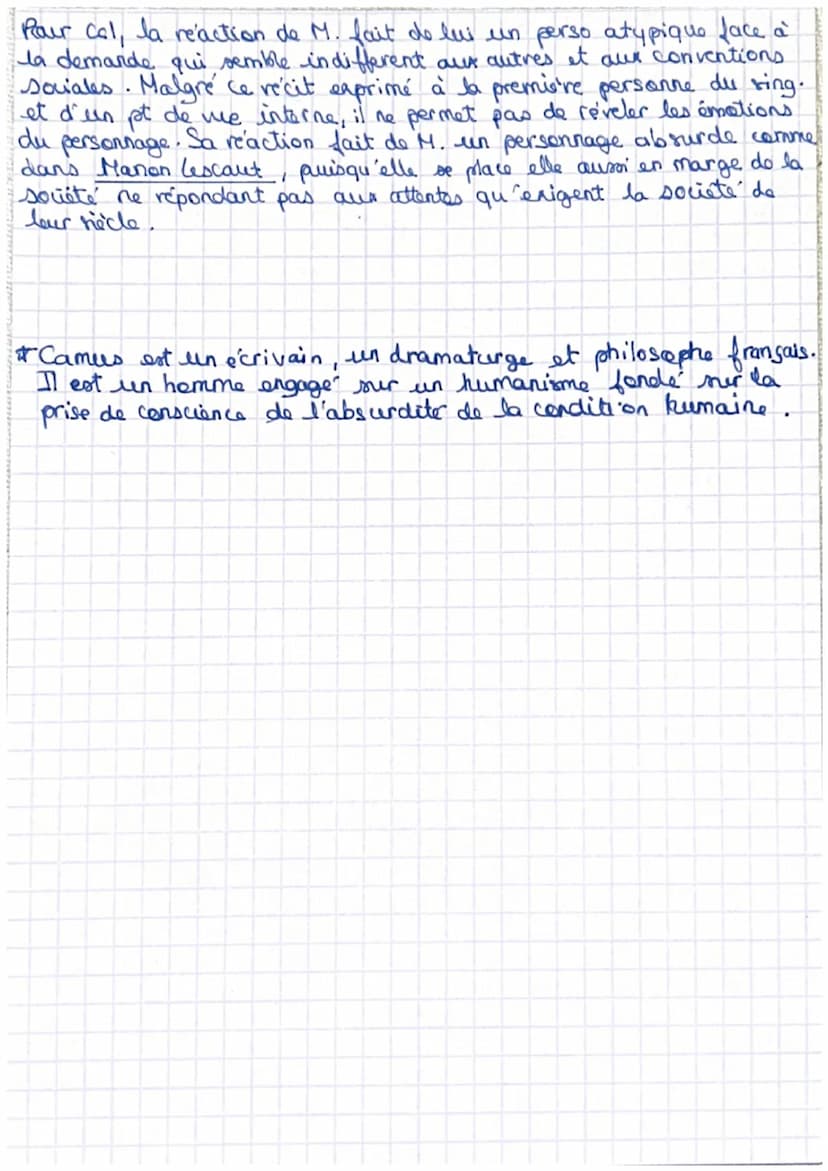 Pour ccl, la réaction de M. fait de lui un perso atypique face à
la demande qui semble indifferent aux autres et aux conventions
sociales. Malgré ce récit exprimé à la première personne du sing.
et d'un pt de vue interne, il ne permet pas de révéler les émotions
du personnage. Sa réaction fait de M. un personnage absurde comme
dans Manon Lescaut, puisqu'elle se place elle aussi en marge de la
société ne répondant pas aux attentes qu'exigent la société de
leur siècle.
* Camus est un écrivain, un dramaturge et philosophe français.
Il est un homme engagé sur un humanisme fondé sur la
prise de conscience de l'absurdité de la condition humaine.